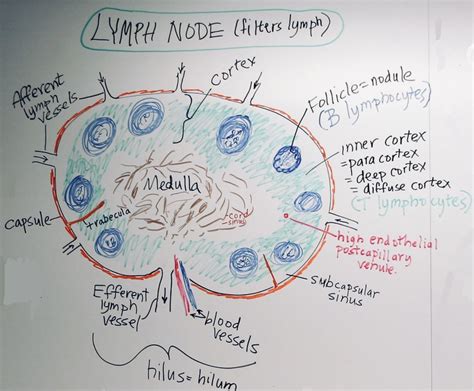 LYMPH NODE (filters lymph)
Afferent
lymph
vessels
cortex
Follicle=nodule
(B lymphocytes)
inner cortex
= para cortex
= deep cortex
= diffuse cortex
(T lymphocytes)
Medulla
cord
sinus
capsule
trabecula
high endothelial
postcapillary
venule.
subcapsular
sinus
Efferent
lymph
vessel
blood
vessels
hilus=hilum